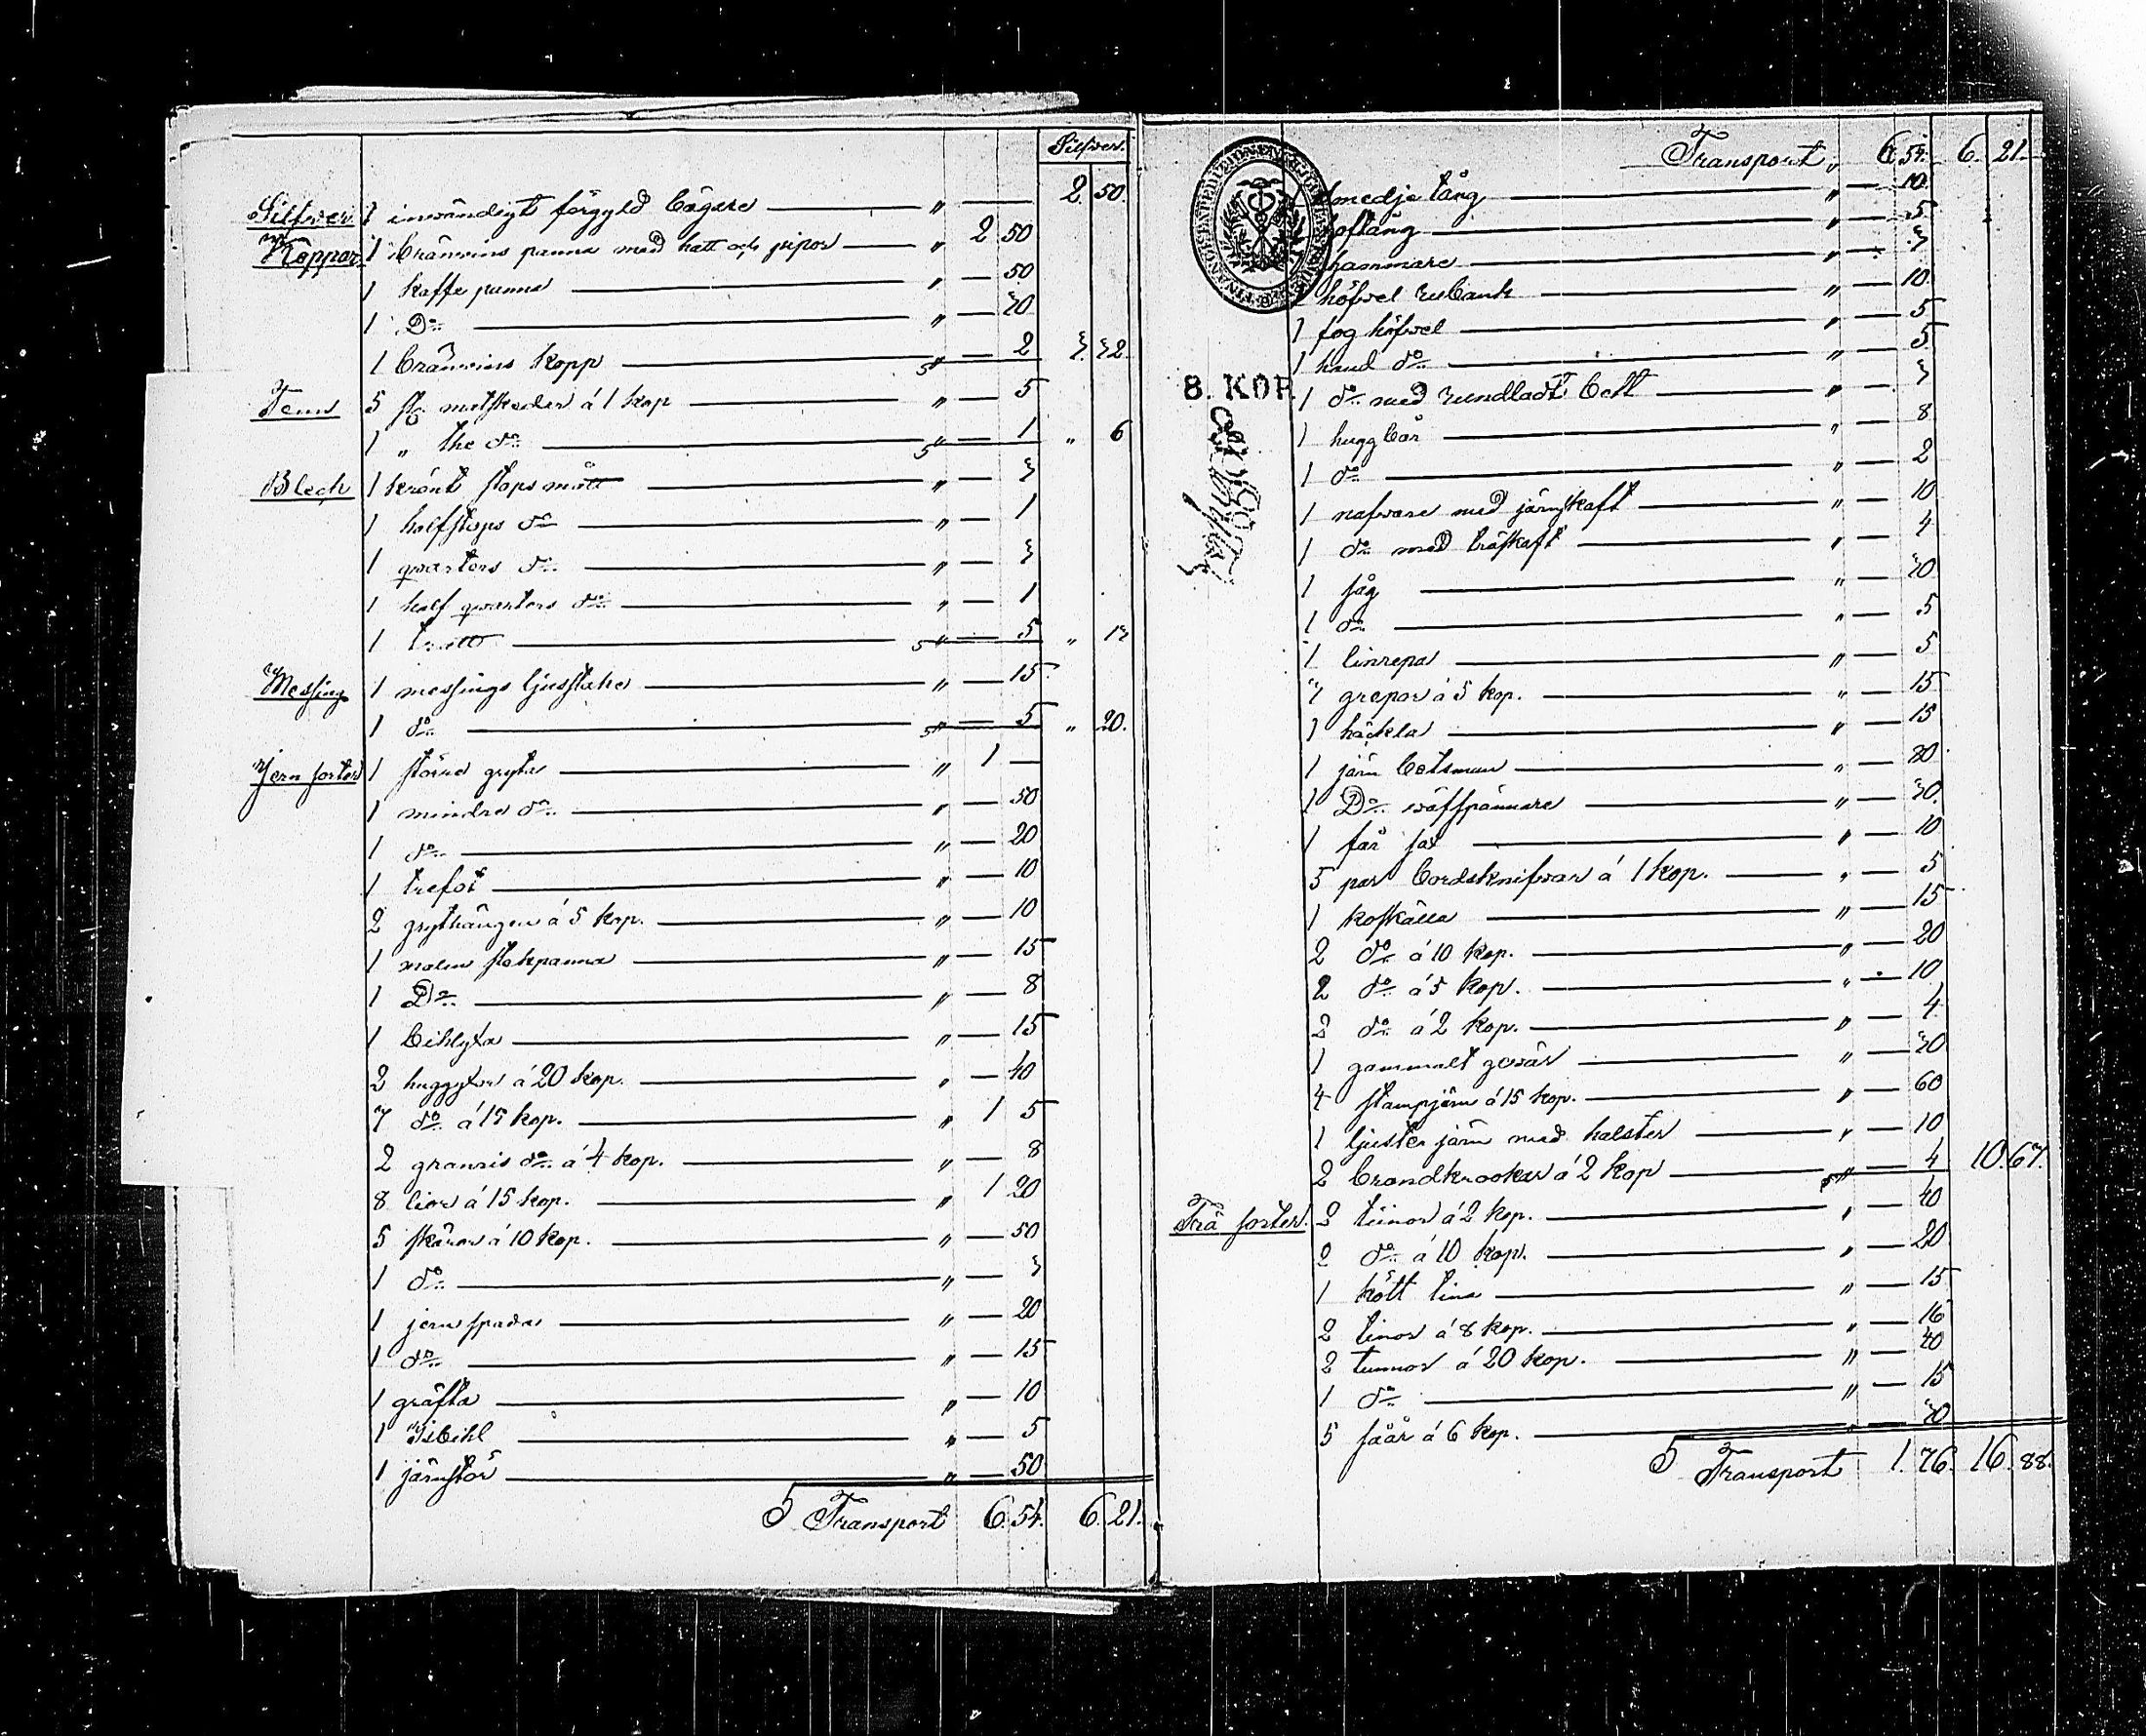 Silfver.
Silfver 1 invändigt förgyld bägare — " — 2 50.
Koppar 1 bränvins panna med hatt och pipor — " 2 50
1 kaffe panna — " — 50
1 Do — " — 30
1 bränvins kopp — " — 2 3 32
Tenn 5 st. matskedar á 1 kop — " — 5
1 " the do — " — 1 " 6
Blech 1 krönt stops mått — " — 3
1 halfstops do — " — 1
1 qvarters do — " — 3
1 half qvarters do — " — 1
1 tratt — " — 5 " 13
Messing 1 messings ljusstake — " — 15
1 do — " — 5 " 20.
Jern sorter 1 större gryta — " 1 —
1 mindre do — " — 50
1 do — " — 20
1 trefot — " — 10
2 grythängen á 5 kop. — " — 10
1 malm stekpanna — " — 15
1 Do — " — 8
1 bihlyxa — " — 15
2 huggyxor á 20 kop. — " — 40
7 do á 15 kop. — " 1 5
2 granris do á 4 kop. — " — 8
8 lior á 15 kop. — " 1 20
5 skäror á 10 kop. — " — 50
1 do — " — 3
1 jern spada — " — 20
1 do — " — 15
1 gräfta — " — 10
1 Isbihl — " — 5
1 järnstör — " — 50
Transport 6.54. 6.21.
Transport " 6 54. 6. 21.
1 smedje tång — " — 10
hoftång — " — 5
hammare — " — 3
1 höfvel rubank — " — 10
1 fog höfvel — " — 5
1 hand do — " — 5
8. KOP.
1 do med rundladt bett — " — 3
1 huggbår — " — 8
1 do — " — 2
1 nafvare med järnskaft — " — 10
1 do med träskaft — " — 4
1 såg — " — 30
1 do — " — 5
1 linrepa — " — 5
3 grepar á 5 kop. — " — 15
1 häckla — " — 15
1 järn betsman — " — 20
1 Do väfspännare — " — 30.
1 får sax — " — 10
5 par bordsknifvar á 1 kop. — " — 5
1 koskälla — " — 15
2 do á 10 kop. — " — 20
2 do á 5 kop. — " — 10
2 do á 2 kop. — " — 4
1 gammalt gevär — " — 30
4 stampjärn á 15 kop. — " — 60
1 ljuster järn med halster — " — 10
2 brandkrookar á 2 kop — " — 4 10.67.
Trä sorter. 2 tiinor á 2 kop. — " — 40
2 do á 10 kop. — " — 20
1 kött tina — " — 15
2 tinor á 8 kop. — " — 16
2 tunnor á 20 kop. — " — 40
1 do — " — 15
5 såår á 6 kop. — " — 30
Transport 1.76. 16.88.